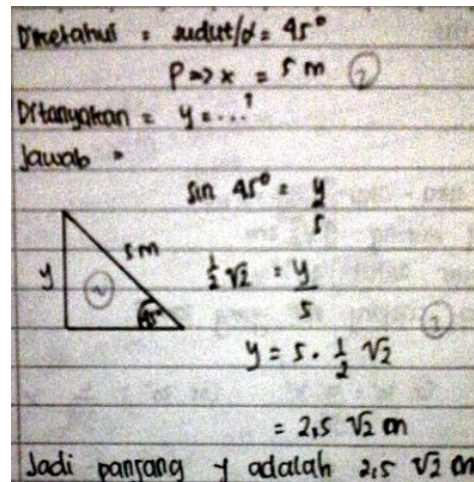 Diketahui = sudut/α = 45°
P => x = 5 m 2
Ditanyakan = y = ...?
Jawab =
sin 45° = y/5
y 2 5 m 45°
½ √2 = y/5
y = 5 · ½ √2
= 2,5 √2 m
Jadi panjang y adalah 2,5 √2 m